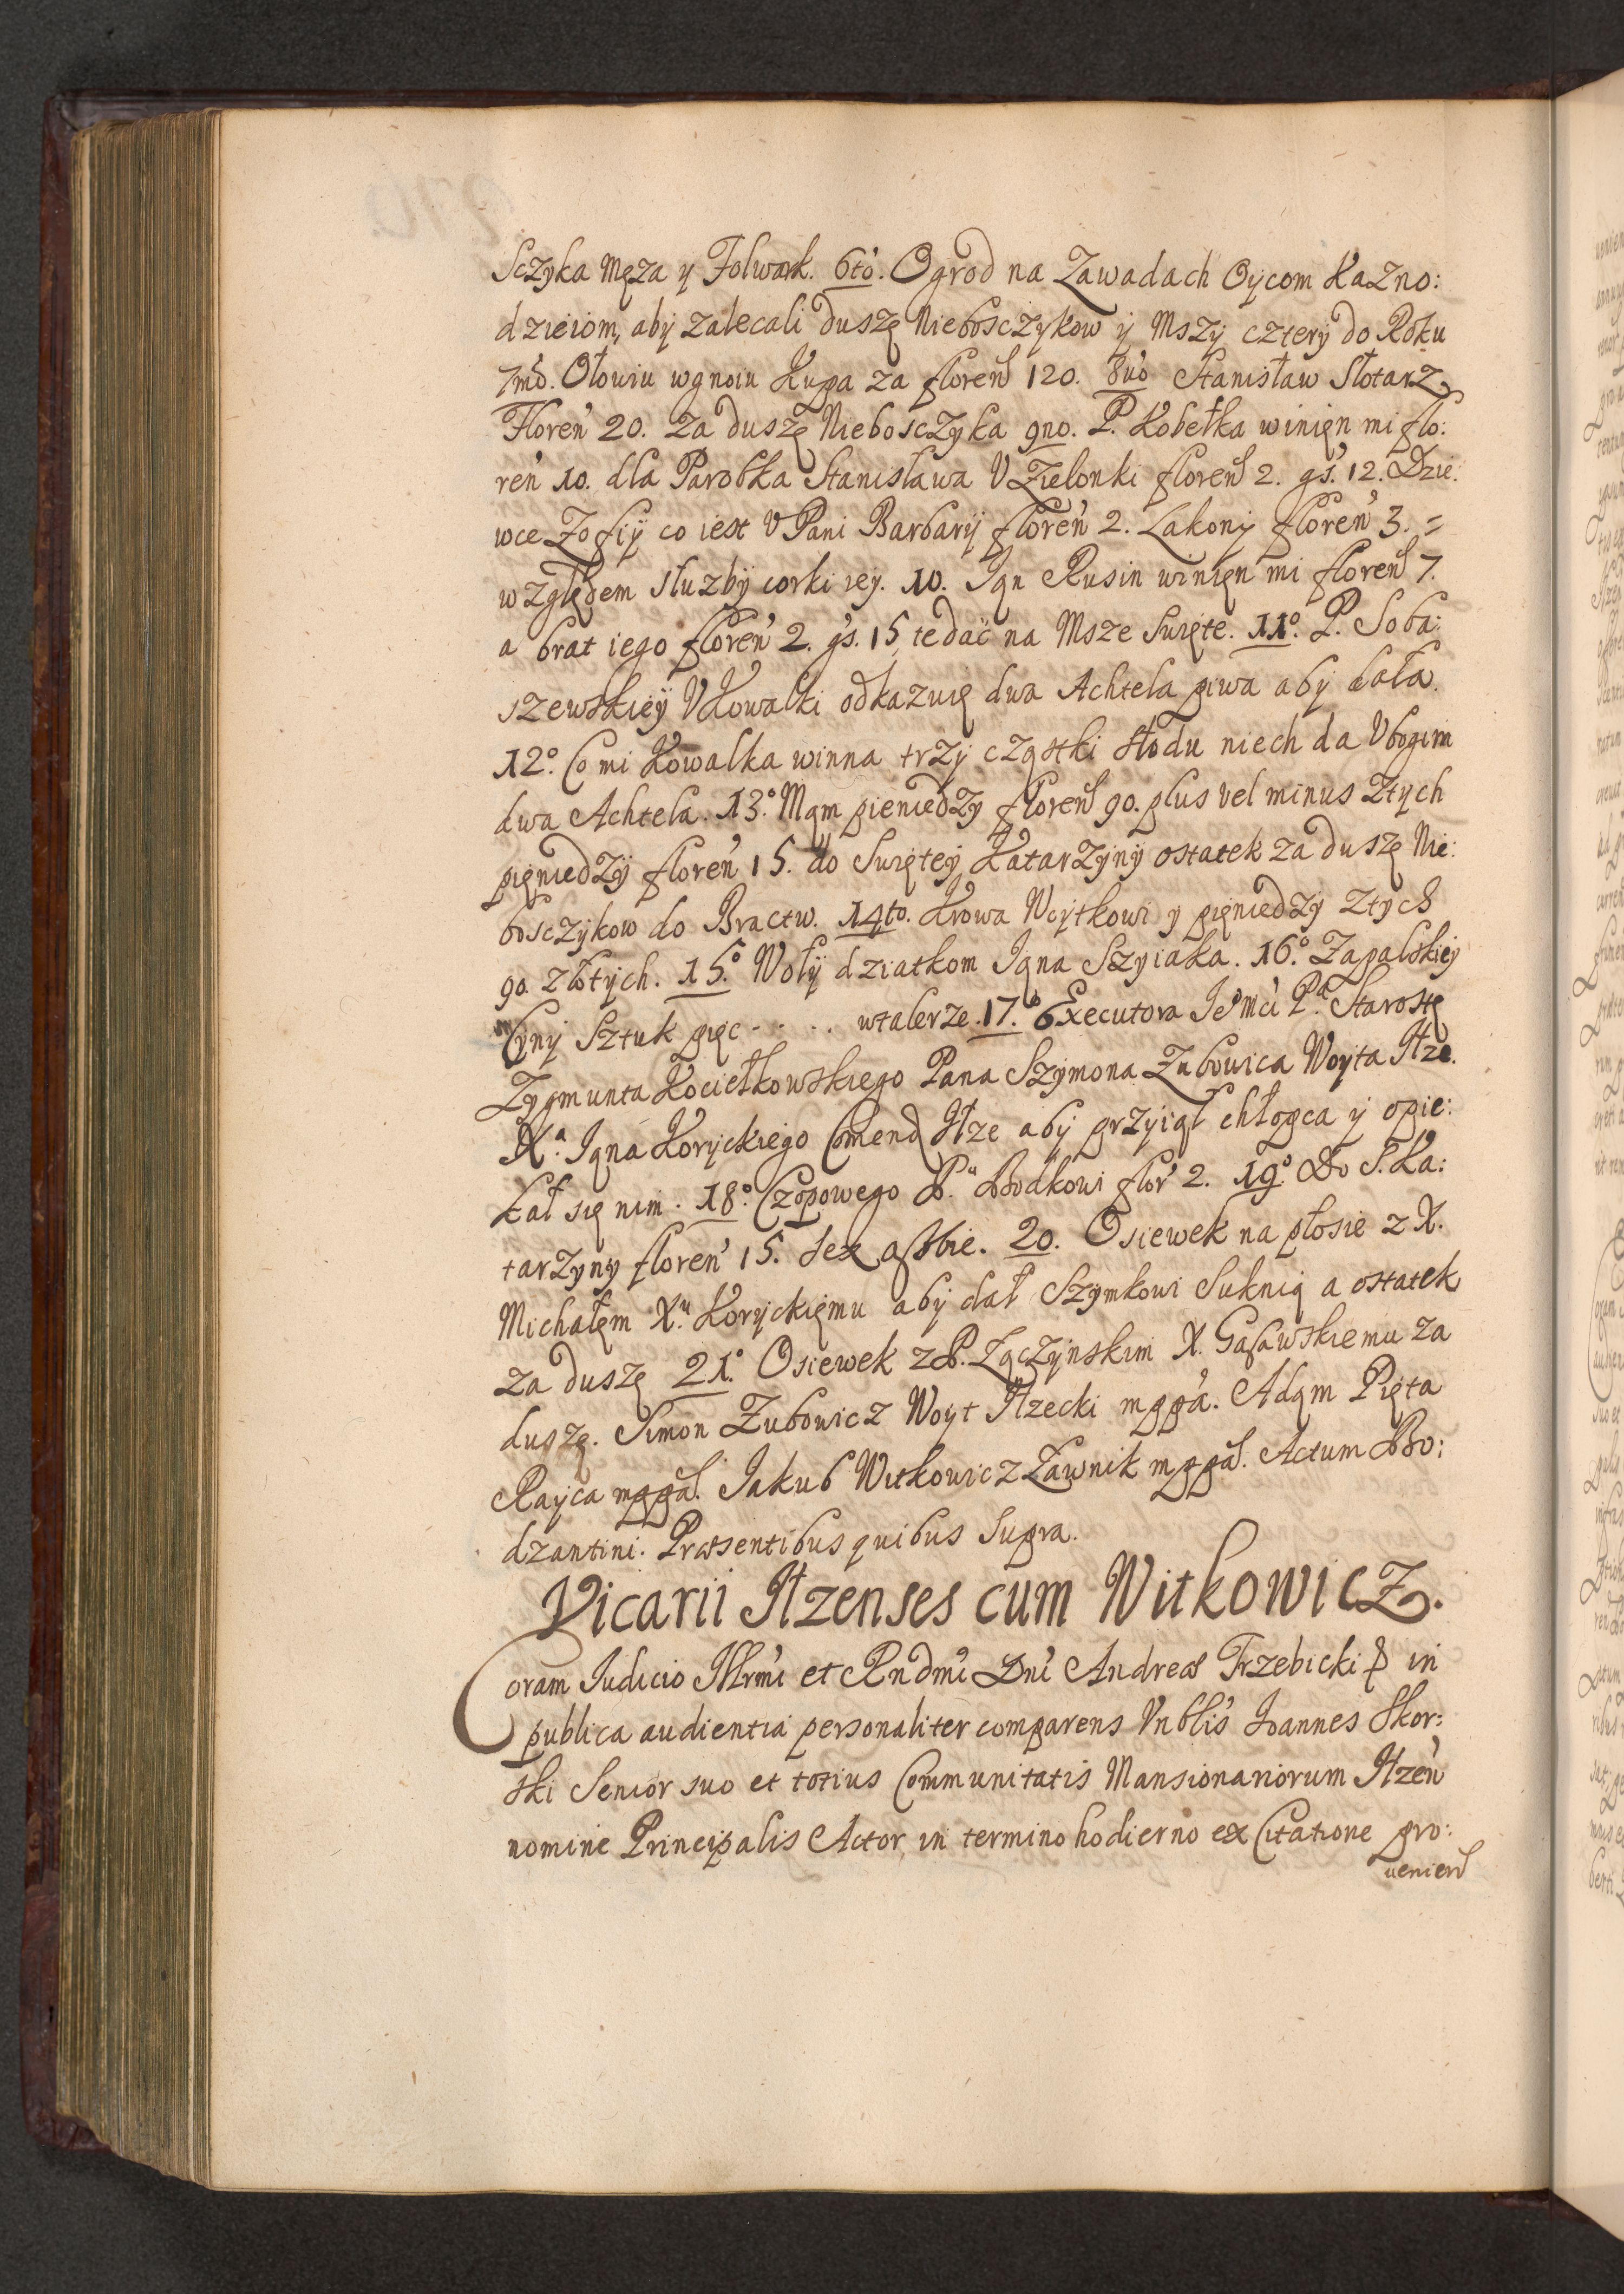 Sczyka Męza y Folwark. 6to. Ogrod na Zawadach Oycom Kazno:
dzieiom, aby zalecali duszę Nieboszczykow y Mszy cztery do Roku
7mo. Ołowiu wgnoiu Kupa za floren 120. 8uo Stanisław Slotarz
Floren 20. Za duszę Niebosczyka 9no. P. Kobełka winięn mi flo:
ren 10. dla Parobka Stanisława V Zielonki floren 2. gs. 12. Dzie:
wce Zofiy co iest V Pani Barbary floren 2. Lakony floren 3. =
względem słuzby corki iey. 10. Iąn Rusin winięn mi floren 7.
a brat iego floren 2. gs. 15 te dać na Msze Swięte. 11o. P. Soba:
szewskiey V Kowalki odkazuię dwa Achtela piwa aby dała.
12o. Co mi Kowalka winna trzy cząstki słodu niech da Vbogim
dwa Achtela. 13o. Mąm pieniedzy floren 90. plus vel minus Ztych
pięniedzy floren 15. do Swiętey Katarzyny ostatek za duszę Nie:
bosczykow do Bractw. 14to. Krowa Woytkowi y pięniedzy Ztych
90. złotych. 15o. Woły dziatkom Iąna Szyiaka. 16o. Zapalskiey
Cyny Sztuk pięc - . . . . wtalerze. 17o. Executora Jemci Pa. Starostę
Zygmunta Kociełkowskiego Pana Szymona Zubowica Woyta Iłze.
Xa. Iąna Koryckiego Comend Iłze aby przyiął chłopca y opie:
kał się nim. 18o. Czopowego P. Bodkowi flor 2. 19o. Do S. Ka:
tarzyny floren 15. 20. Osiewek na płosie z X.
Michałęm Xu. Koryckięmu aby dał Szymkowi Suknią a ostatek
za duszę 21o. Osiewek z P. Łączynskim X. Gasawskiemu za
duszę. Simon Zubowicz Woyt Iłzecki mppa. Adąm Pięta
Rayca mppa. Jakub Witkowicz Ławnik mppa. Actum Bo:
dzantini. Præsentibus quibus Supra.
Vicarii Iłzenses cum Witkowicz.
Coram Iudicio Illrmi et Rndmi Dni Andreæ Trzebicki in
publica audientia personaliter comparens Vnblis Ioannes Skor:
ski Senior suo et totius Communitatis Mansionariorum Iłzen
nomine Principalis Actor, in termino hodierno ex Citatione pro:
uenien